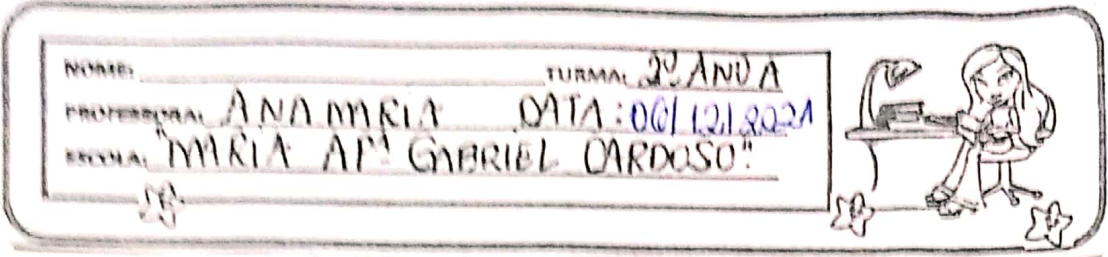 NOME: TURMA: 2º ANO A
PROFESSORA: ANA MARIA DATA: 06/12/2021
ESCOLA: "MARIA Apª GABRIEL CARDOSO"